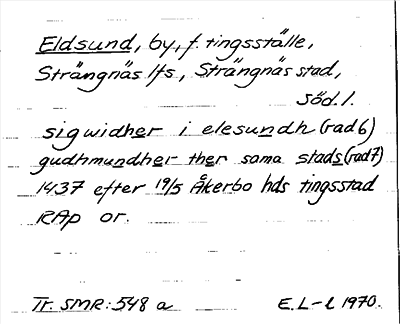 Eldsund, by, f. tingsställe,
Strängnäs lfs, Strängnäs stad,
Söd. l.
sigwidher i elesundh (rad 6)
gudhmundher ther sama stads (rad 7)
1437 efter 19/5 Åkerbo hds tingsstad
RAp or.
Tr. SMR: 548 a
E. L-l 1970.